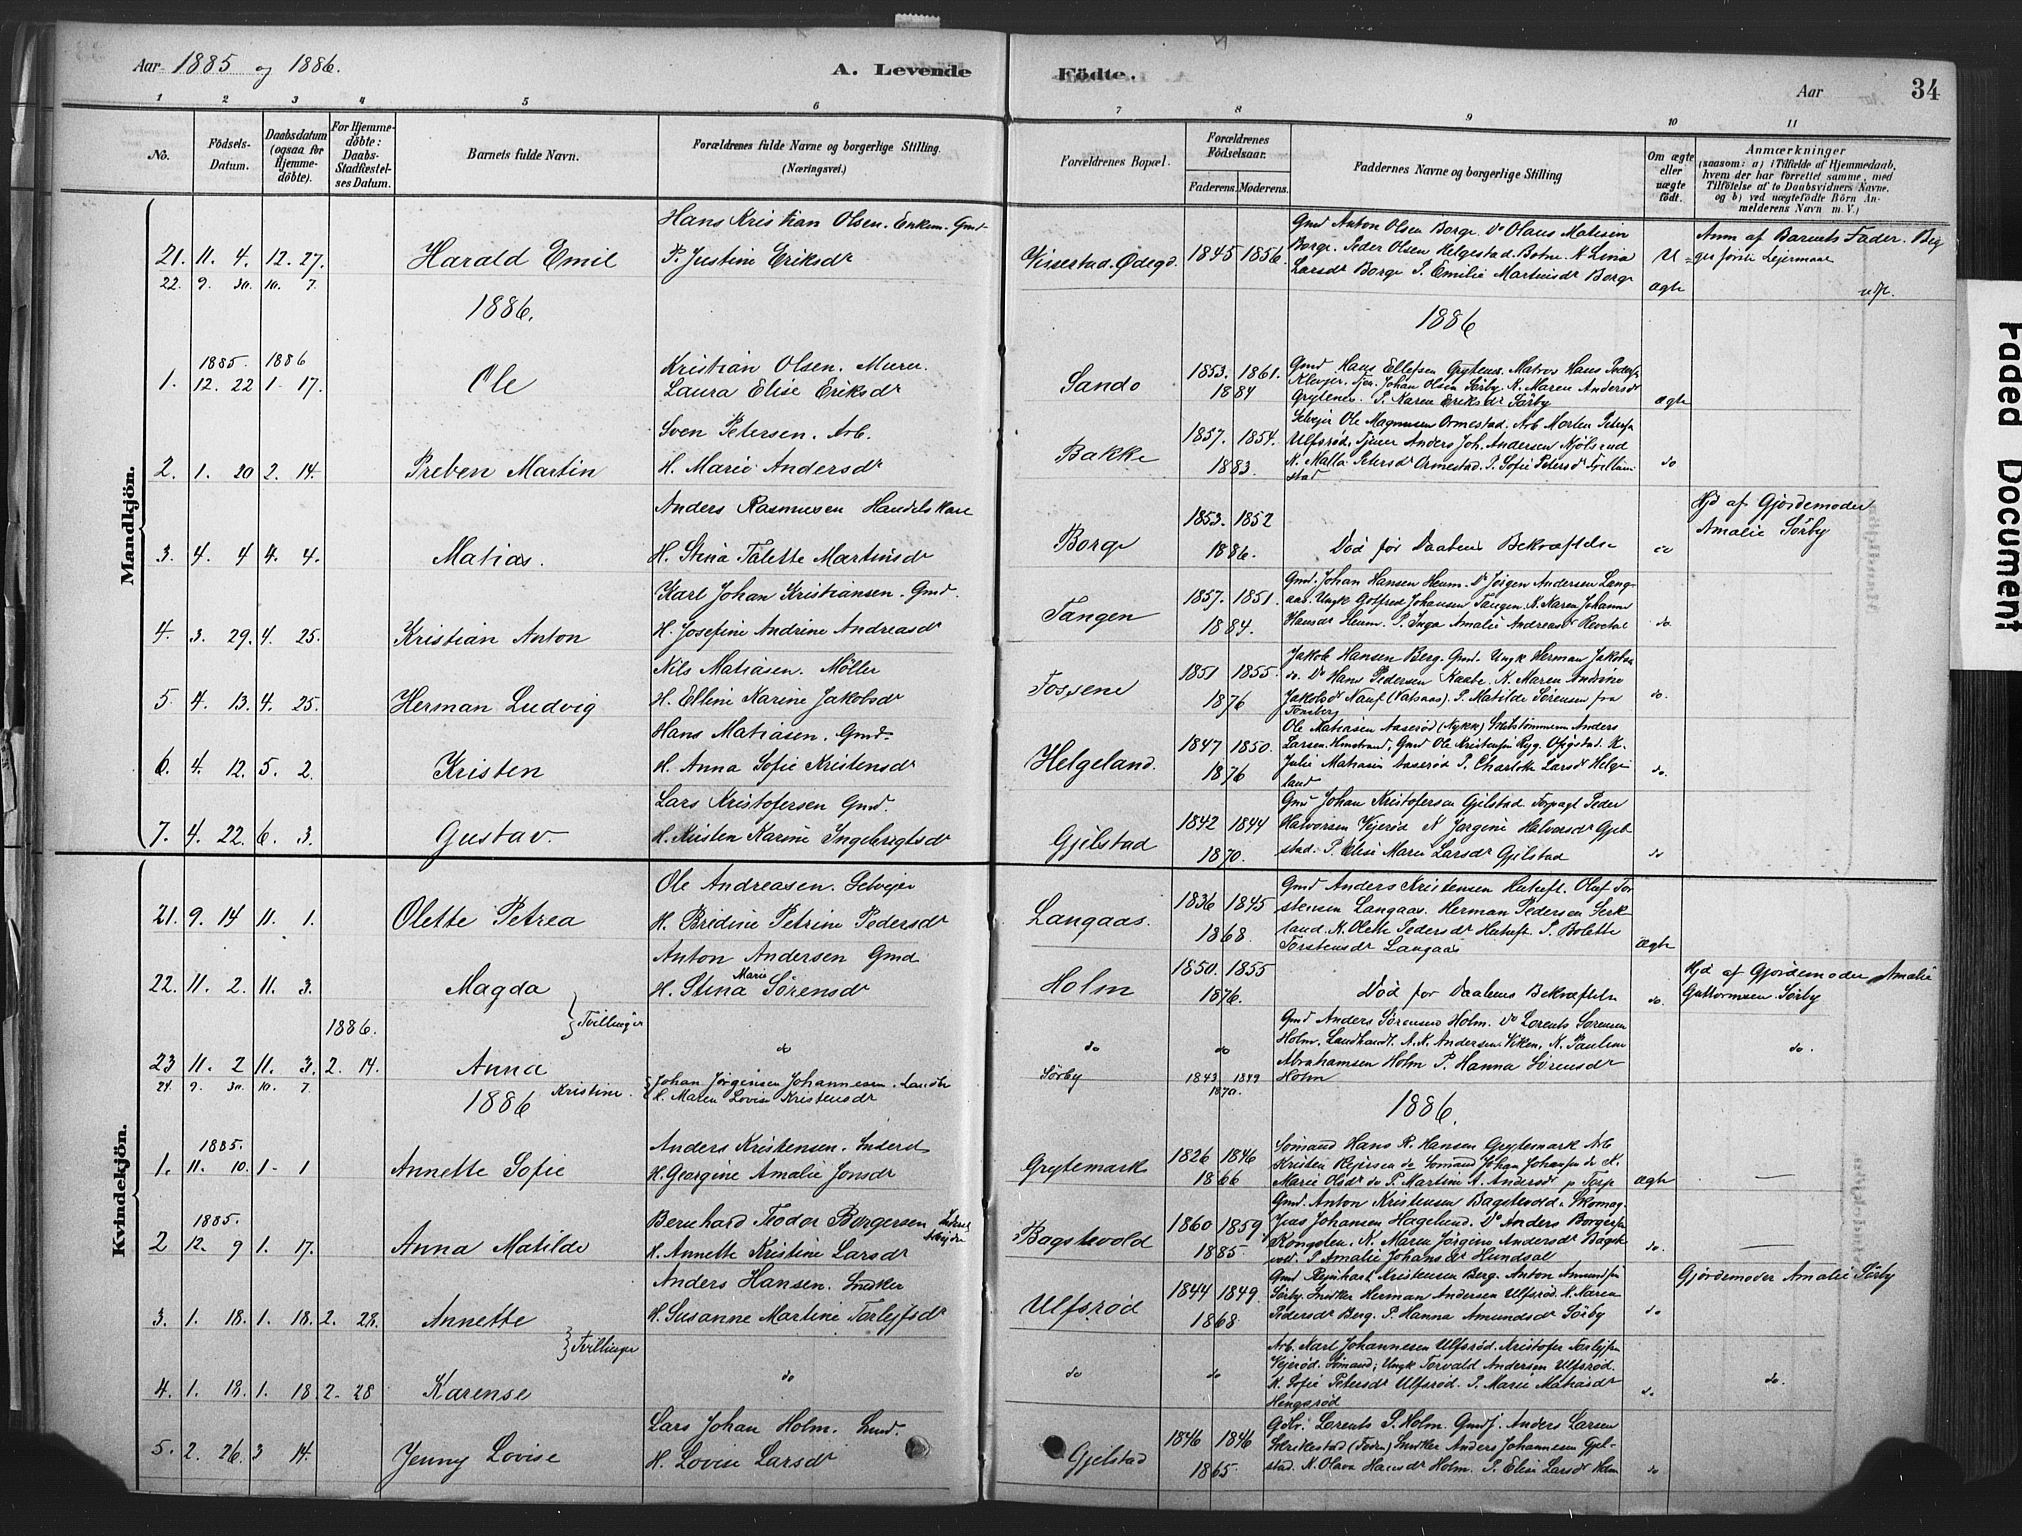 Aar 1885 og 1886.
A. Levende Födte.
Aar
34
1 2 3 4 5 6 7 8 9 10 11
No.
Födsels-Datum.
Daabsdatum (ogsaa for Hjemme-döbte).
For Hjemme-döbte: Daabs-Stadfæstel-ses Datum.
Barnets fulde Navn.
Forældrenes fulde Navne og borgerlige Stilling. (Næringsvei.)
Forældrenes Bopæl.
Forældrenes Födselsaar.
Faderens. Moderens.
Faddernes Navne og borgerlige Stilling
Om ægte eller uægte födt.
Anmærkninger
(saasom: a) i Tilfælde af Hjemmedaab, hvem der har forrettet samme, med Tilföielse af to Daabsvidners Navne, og b) ved uægtefödte Börn Anmelderens Navn m. V.)
Mandkjön.
Hans Kristian Olsen. Enkem. Gmd.
21. 11. 4. 12. 27. Harald Emil P. Justine Eriksdr
Vissestad. Ødegd. 1845 1856.
Gmd Anton Olsen Borge. Do Olaus Matisen
Borge. Peder Olsen Helgestad. Botne. K. Lina
Larsdr Borge P. Emilie Martinsdr Borge
U
Anm af Barnets Fader. Beg-
ges første Lejermaal
22. 9. 30. 10. 7.
ægte
1886.
1886
1885. 1886
1. 12. 22 1. 17. Ole
Kristian Olsen. Murer.
Laura Elise Eriksdr
Sando 1853. 1861.
1884
Gmd Hans Ellefsen Grytenes. Matros Hans Peders
Klevjer. Tjen. Johan Olsen Sørby. K. Maren Andersdr
Grytenes. P. Karen Eriksdr Sørby
ægte
2. 1. 20 2. 14. Preben Martin
Sven Petersen. Arb.
H. Marie Andersdr
Bakke 1857. 1854.
1883.
Selvejer Ole Magnussen Ormestad. Arb Morten Peters
Ulfsrød. Tjener Anders Joh. Andersen
K. Malla Petersdr Ormestad. P. Sofie Petersdr
stad
do
3. 4. 4 4. 4. Matias.
Anders Rasmussen Handelskarl
H. Stina Talette Martinsdr
Borge 1853. 1852
1886.
Død før Daabens Bekræftelse
do
Hjd af Gjordemoder
Amalie Sørby
4. 3. 29. 4. 25. Kristian Anton
Karl Johan Kristiansen. Gmd.
H. Josefine Andrine Andreasdr
Tangen 1857. 1851.
1884.
Gmd. Johan Hansen Heum. Do Jørgen Andersen Lang-
aas. Ungk Golfred Johansen Tangen. K. Karen Johanne
Hansdr Heum. P. Inga Amalie Andreasdr Revetal
do.
5. 4. 13. 4. 25. Herman Ludvig
Nils Matiasen. Møller
H. Elline Karine Jakobsdr
Fossene 1851 1855.
1876
Jakob Hansen Berg. Gmd. Ungk Herman Jakobsen
do. Do Hans Pedersen Kaabe. K. Maren Andrine
Jakobsdr Nauf (Vatsaas). P. Matilde Sørensen fra
Tønsberg
do.
6. 4. 12. 5. 2. Kristen
Hans Matiasen. Gmd.
H. Anna Sofie Kristensdr
Helgeland. 1847 1850.
1876
Ole Matiasen Aaserød (Nykk)
Anders
Larsen. Gmd Ole Kristensen K.
Julie Matiasen Aaserød P. Charlotte Larsdr Helge-
land
do.
7. 4. 22. 6. 3. Gustav.
Lars Kristofersen Gmd.
H. Kristen Karine Ingebrigtsdr
Gjelstad 1842 1844
1870.
Gmd Johan Kristofersen Gjelstad Forpagt Peder
Halvorsen Vejerød K Jørgine Halvorsdr Gjel-
stad. P. Elise Marie Larsdr Gjelstad
do
Kvindekjön.
21. 9. 14 11. 1. Olette Petrea
Ole Andreasen. Selvejer
H. Bredine Petrine Pedersdr
Langaas. 1836 1845
1868.
Gmd Anders Kristensen Olaf Tor-
stensen Langaas. Herman Pedersen Serk-
land. K. Olette Pedersdr P. Bolette
Torstensdr Langaas
ægte
22. 11. 2. 11. 3. Magda
Anton Andersen Gmd
H. Stina Marie Sørensdr
Holm 1850. 1855
1876.
Død før Daabens Bekræftelse
do.
Hjd af Gjordemoder Amalie
Guttormsen Sørby
Tvillinger
1886.
23 11. 2 11. 3. 2. 14. Anna
do
do do
Gmd Anders Sørensen Holm. Do Lorents Sørensen
Holm. Landhandl. A. K. Andersen. Viken, K. Pauline
Abrahamsen Holm P. Hanna Sørensdr
Holm
do.
24. 9. 30. 10. 7. Kristine.
Johan Jørginsen Johannesen.
H. Maren Lovise Kristensdr
Sørby 1843 1849
1870.
1886
1886.
1885.
1. 11. 10. 1. 1 Annette Sofie
Anders Kristensen. Inderst
H. Georgine Amalie Jonsdr
Grytemark 1826 1846
1866
Sømand Hans R. Hansen Grytemark Arb
Kristen do Sømand Johan Johansen do K.
Marie Olsdr do P. Martine A. Andersdr p Torp
ægte
—
1885.
2 12. 9 1. 17. Anna Matilde
Bernhard Teodor Borgersen
H. Annette Kristine Larsdr
Bagstevold 1860 1859.
1885
Gmd. Anton Kristensen Bagstevold. Skomag.
Jens Johansen Hagelund. Do Anders Borgers
Kongsten. K. Maren Jørgine Andersdr Bagste-
vold. P Amalie Johansdr Hundsal
do.
—
3. 1. 18. 1. 18. 2. 28. Annette
Anders Hansen. Snedker
H. Susanne Martine Torleifsdr
Ulfsrød 1844 1849.
1868
Gmd Reinhart Kristensen Berg. Anton Amundsen
Sørby. Snedker Herman Andersen Ulfsrød. K. Karen
Pedersdr Berg. P. Hanna Amundsdr Sørby
do
Gjordemoder Amalie Sørby
Tvillinger
4. 1. 18. 1. 18. 2. 28 Karense
do
do do
Arb. Karl Johannesen Ulfsrød. Kristofer Torleifsen
Vejerød. Sømand; Ungk Torvald Andersen Ulfsrød.
K. Sofie Petersdr Ulfsrød. P. Marie Matiasdr
Hengsrød
do
do.
5. 2. 26. 3 14. Jenny Lovise
Lars Johan Holm. Smed.
H. Lovise Larsdr
Gjelstad 1846 1846
1865.
Gdbr. Lorents P. Holm. Gmdf. Anders Larsen
Snedker Anders Johannesen Gjel-
stad. K. Olava Hansdr Holm. P. Elise Larsdr Holm
do
Faded Document